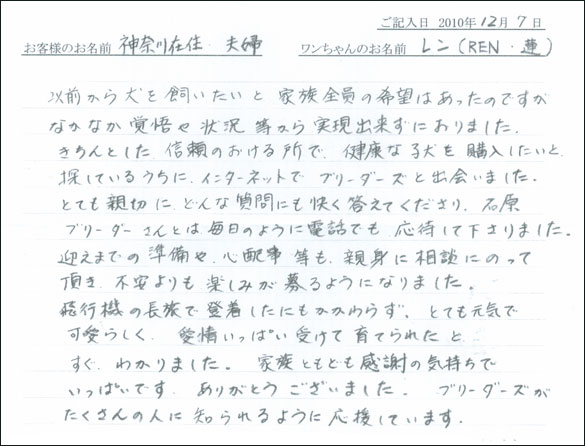 ご記入日 2010年12月7日
お客様のお名前 神奈川在住 夫婦 ワンちゃんのお名前 レン(REN・蓮)
以前から犬を飼いたいと 家族全員の希望はあったのですが
なかなか覚悟や状況等から実現出来ずにおりました.
きちんとした信頼のおける所で、健康な子犬を購入したいと、
探しているうちに、インターネットでブリーダーズと出会いました。
とても親切に、どんな質問にも快く答えてくださり、石原
ブリーダーさんとは毎日のように電話でも、応待して下さりました。
迎えまでの準備や、心配事等も、親身に相談にのって
頂き、不安よりも楽しみが募るようになりました。
飛行機の長旅で登着したにもかかわらず、とても元気で
可愛らしく、愛情いっぱい受けて育てられたと
すぐ、わかりました。 家族ともども感謝の気持ちで
いっぱいです. ありがとうございました. ブリーダーズが
たくさんの人に知られるように応援しています.